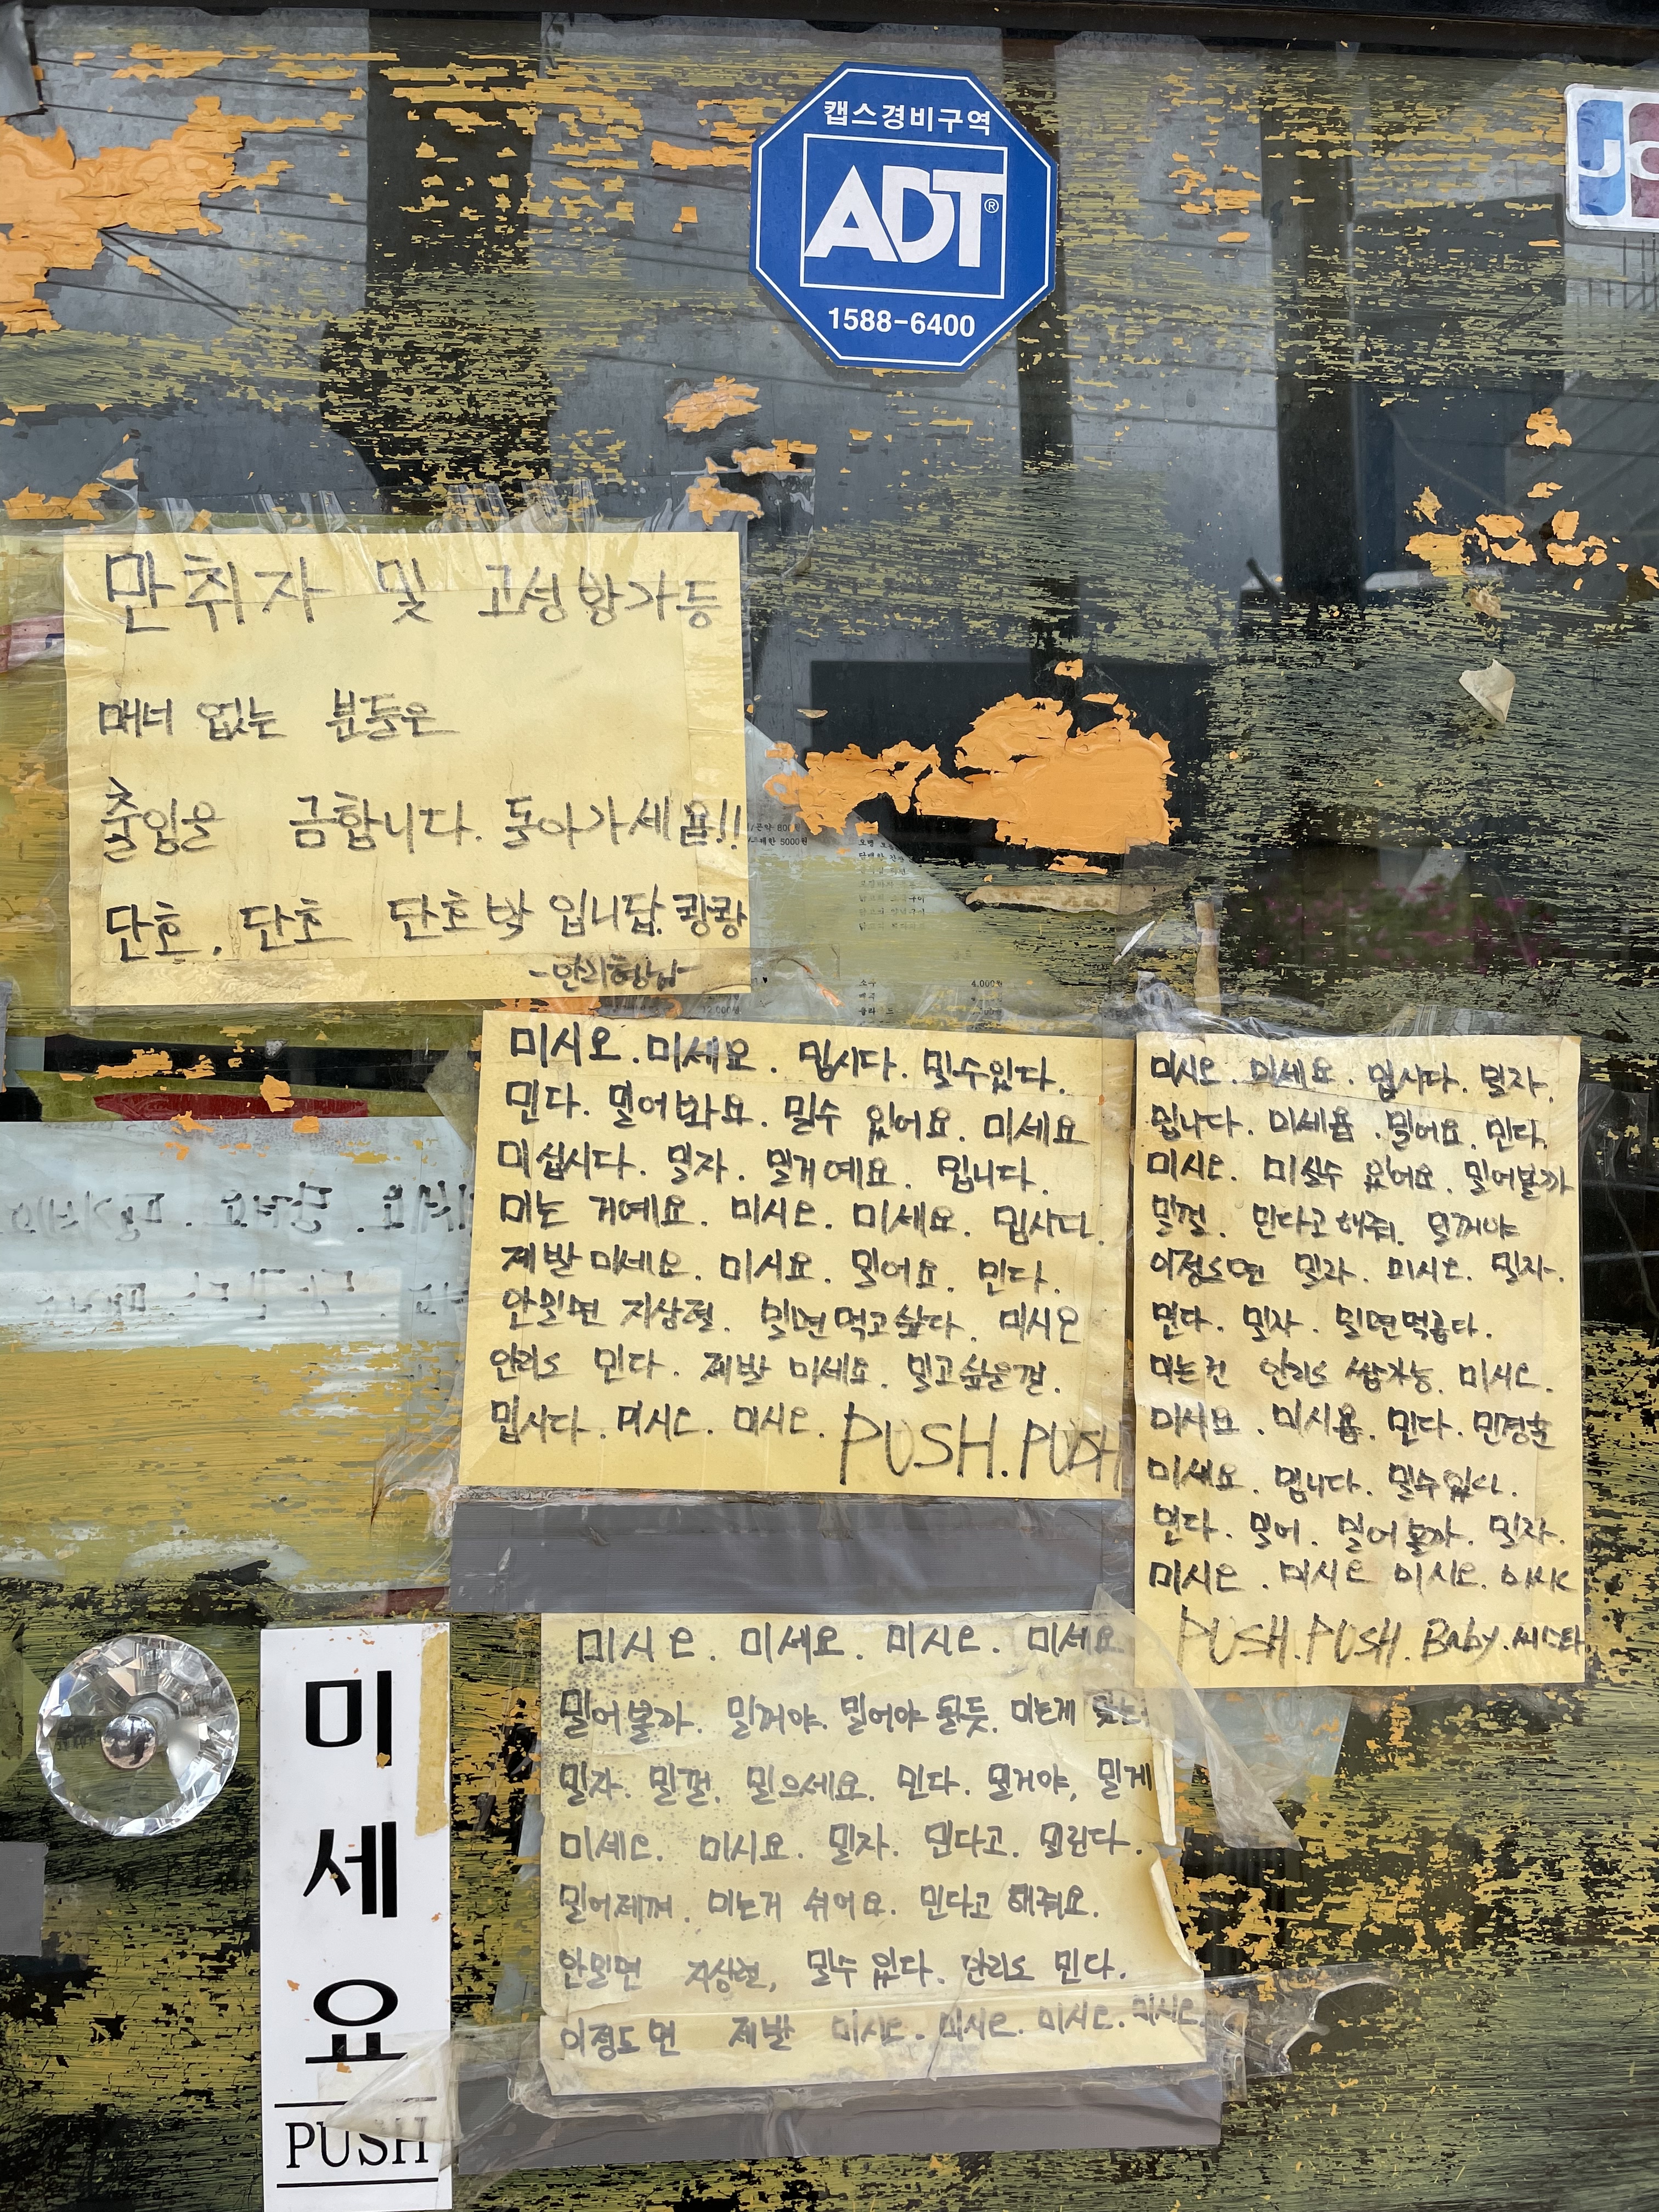 캡스경비구역
ADT®
1588-6400
만취자 및 고성방가등
매너 없는 분들은
출입을 금합니다. 돌아가세욤!!
단호. 단호 단호박 입니답. 큉큉
미시오. 미세요. 밉시다. 밀수있다.
민다. 밀어봐요. 밀수 있어요. 미세요
미십시다. 밀자. 밀거예요. 밉니다.
미는 거예요. 미시오. 미세요. 밉시다.
제발 미세요. 미시요. 밀어요. 민다.
안밀면 지상렬. 밀면 먹고싶다. 미시오
안리도 민다. 제발 미세요. 밀고싶은걸.
밉시다. 미시오. 미시오. PUSH. PUSH
미시오. 미세요. 밉시다. 밀자.
밉니다. 미세욤. 밀어요. 민다.
미시오. 미실수 있어요. 밀어볼까
밀껄. 민다고 해줘. 밀꺼야
이정도면 밀라. 미시오. 밀자.
민다. 밀자. 밀면먹곱다.
미는건 안리도 쌉가능. 미시오.
미시요. 미시욤. 민다. 민경훈
미세요. 밉니다. 밀수있다.
민다. 밀어. 밀어볼까. 밀자.
미시오. 미시오 미시오.
PUSH. PUSH. Baby. 씨스타
미시오. 미세요. 미시오. 미세요
밀어볼까. 밀꺼야. 밀어야 될듯. 미는게
밀자. 밀껄. 밀으세요. 민다. 밀거야, 밀게
미세오. 미시요. 밀자. 민다고. 밀린다.
밀어제껴. 미는거 쉬어요. 민다고 해줘요.
안밀면 지상렬, 밀수 있다. 안리도 민다.
이정도면 제발 미시오. 미시오. 미시오. 미시오.
미세요
PUSH